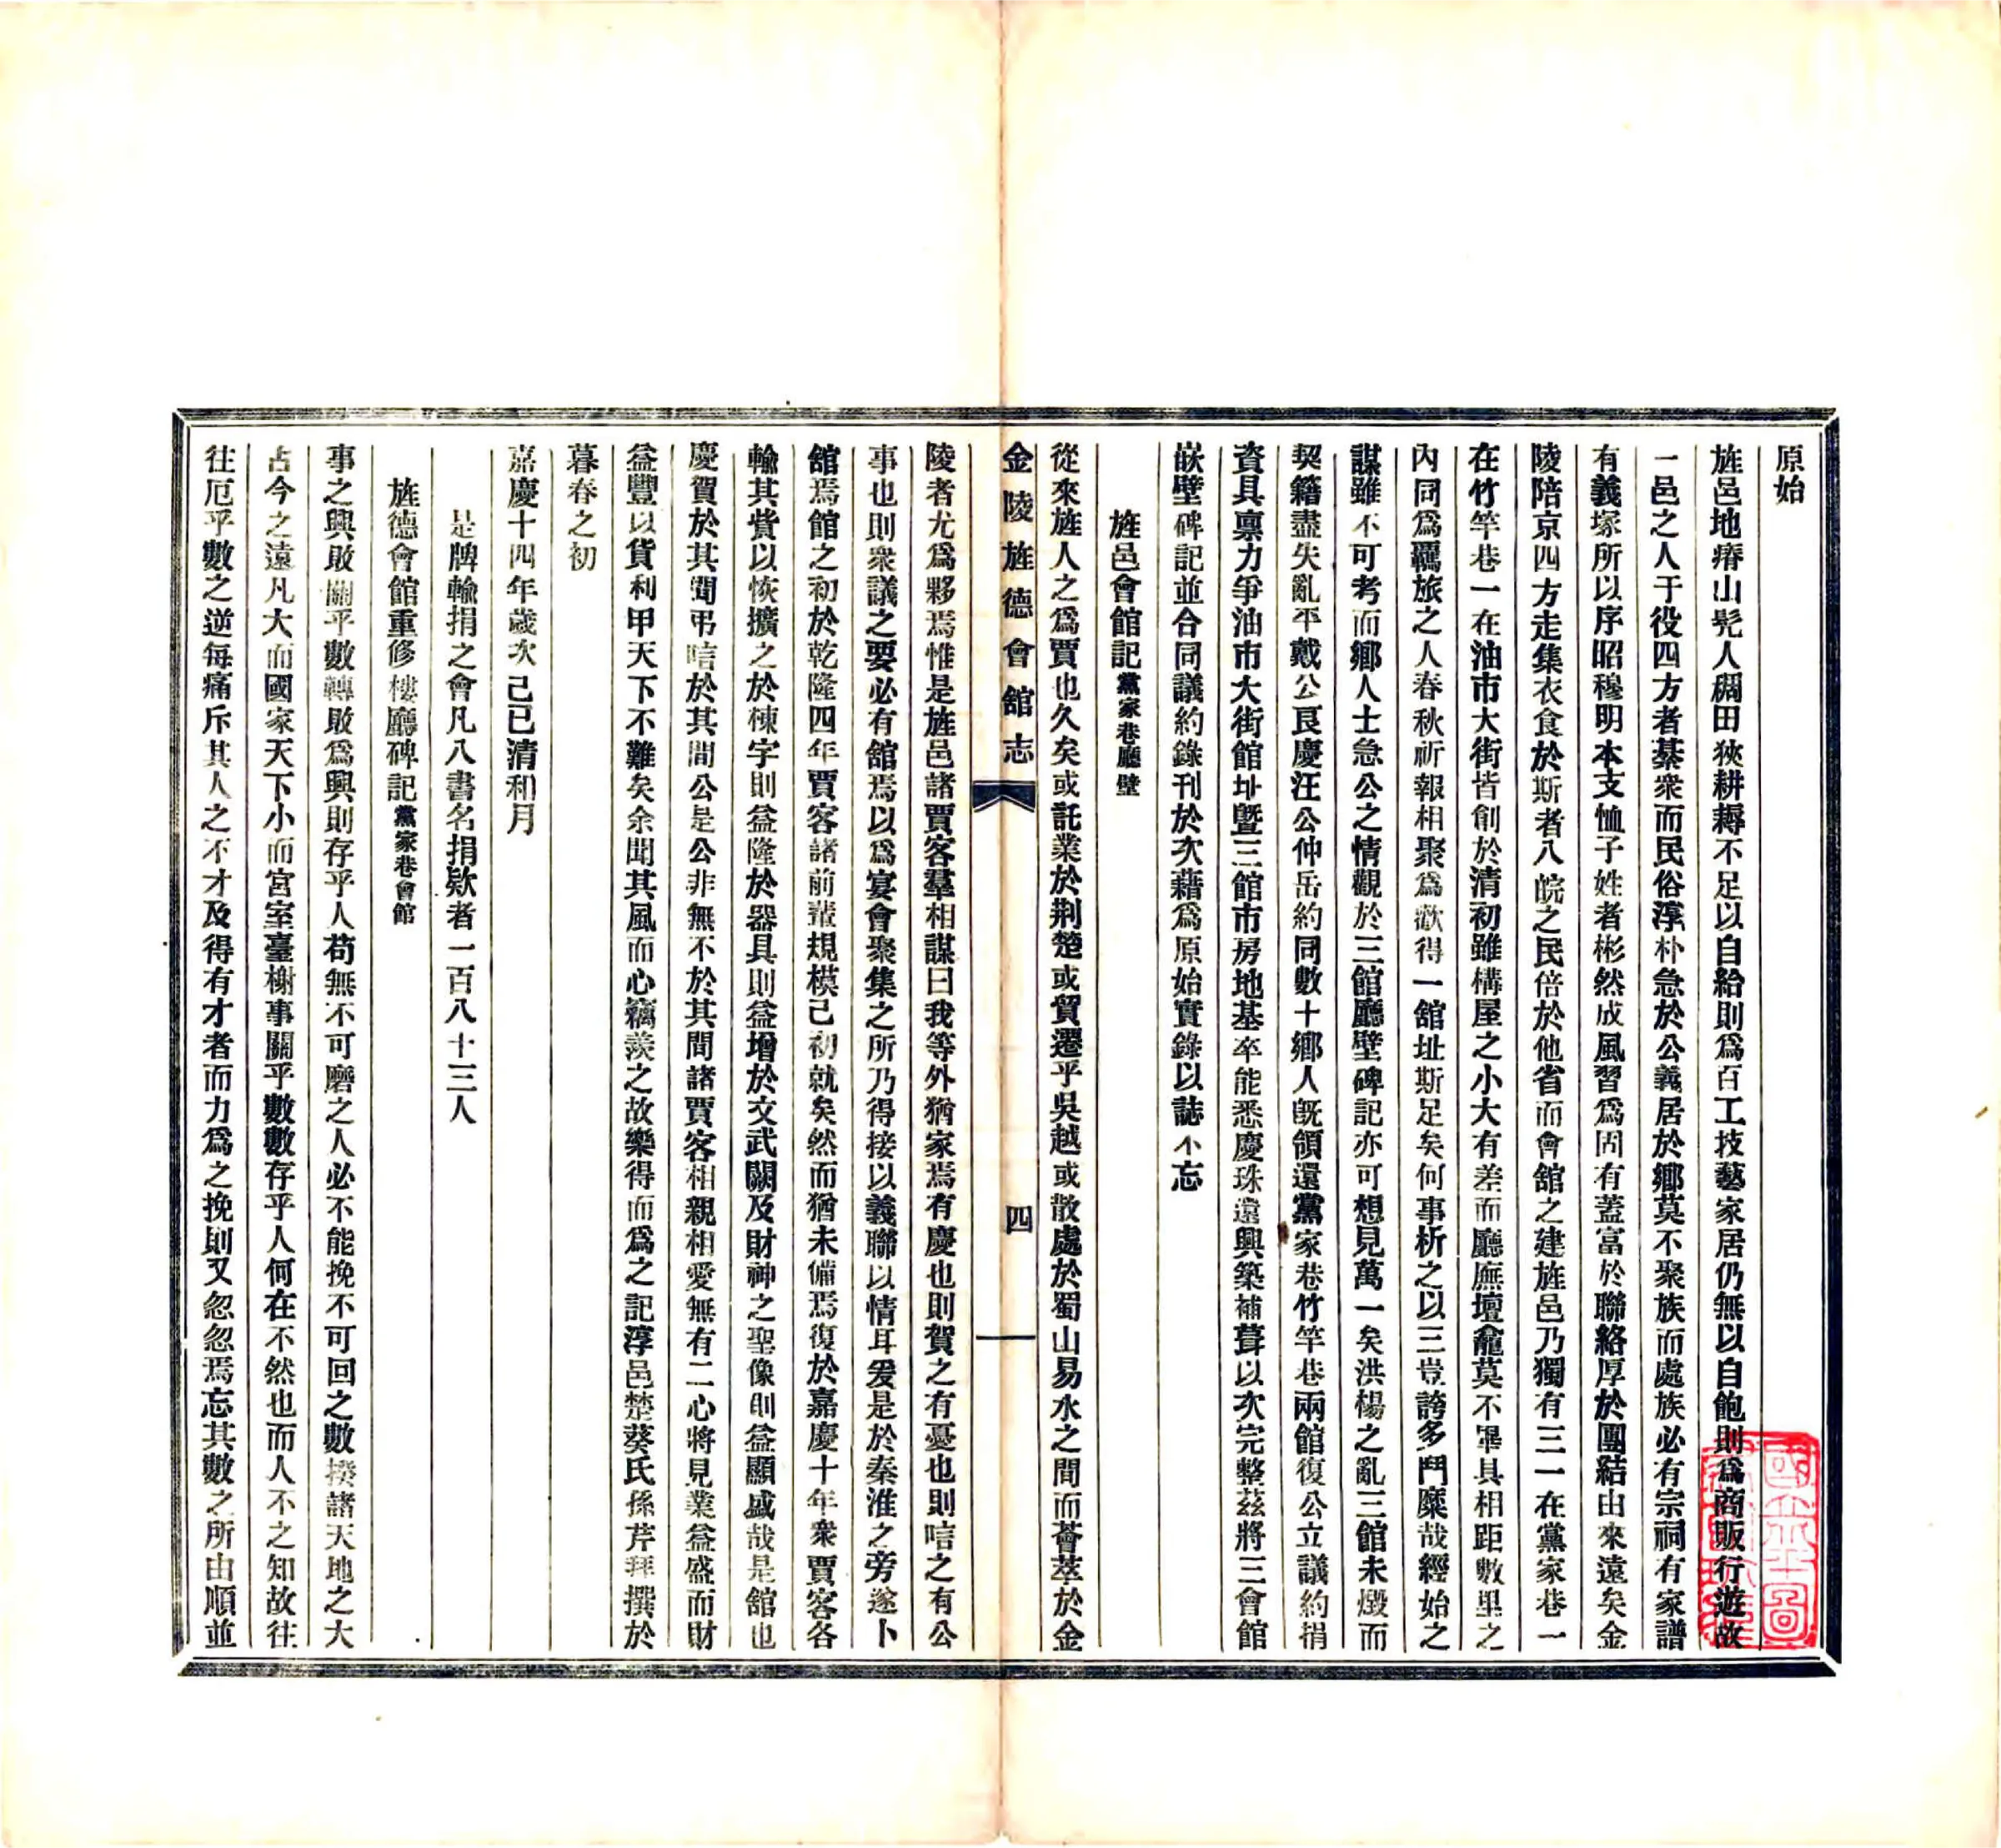 原始
旌邑地瘠山髡人稠田狹耕耨不足以自給則爲百工技藝家居仍無以自飽則爲商販行遊故
一邑之人于役四方者綦衆而民俗淳朴急於公義居於鄉莫不聚族而處族必有宗祠有家譜
有義塚所以序昭穆明本支恤子姓者彬然成風習爲固有蓋富於聯絡厚於團結由來遠矣金
陵陪京四方走集衣食於斯者八皖之民倍於他省而會舘之建旌邑乃獨有三一在黨家巷一
在竹竿巷一在油市大街皆創於清初雖構屋之小大有差而廳廡壇龕莫不畢具相距數里之
內同爲羈旅之人春秋祈報相聚爲歡得一舘址斯足矣何事析之以三豈誇多鬥糜哉經始之
謀雖不可考而鄉人士急公之情觀於三館廳壁碑記亦可想見萬一矣洪楊之亂三館未燬而
契籍盡失亂平戴公艮慶汪公仲岳約同數十鄉人旣領還黨家巷竹竿巷兩館復公立議約捐
資具禀力爭油市大街館址曁三館市房地基卒能悉慶珠還興築補葺以次完整茲將三會館
嵌壁碑記並合同議約錄刊於次藉爲原始實錄以誌不忘
旌邑會館記黨家巷廳壁
從來旌人之爲賈也久矣或託業於荆楚或貿遷乎吳越或散處於蜀山易水之間而薈萃於金
金陵旌德會舘志 四
陵者尤爲夥焉惟是旌邑諸賈客羣相謀曰我等外猶家焉有慶也則賀之有憂也則唁之有公
事也則衆議之要必有舘焉以爲宴會聚集之所乃得接以義聯以情耳爰是於秦淮之旁遂卜
舘焉館之初於乾隆四年賈客諸前輩規模己初就矣然而猶未備焉復於嘉慶十年衆賈客各
輸其貲以恢擴之於棟宇則益隆於器具則益增於文武關及財神之聖像則益顯盛哉是舘也
慶賀於其間弔唁於其間公是公非無不於其間諸賈客相親相愛無有二心將見業益盛而財
益豐以貨利甲天下不難矣余聞其風而心竊羨之故樂得而爲之記淳邑楚葵氏孫芹拜撰於
暮春之初
嘉慶十四年歲次己巳清和月
是牌輸捐之會凡八書名捐欵者一百八十三人
旌德會館重修樓廳碑記黨家巷會館
事之興敗關乎數轉敗爲興則存乎人苟無不可磨之人必不能挽不可回之數揆諸天地之大
古今之遠凡大而國家天下小而宮室臺榭事關乎數數存乎人何在不然也而人不之知故往
往厄乎數之逆每痛斥其人之不才及得有才者而力爲之挽則又忽忽焉忘其數之所由順並